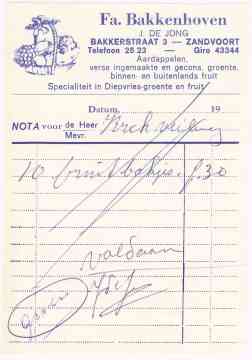 Fa. Bakkenhoven
J. DE JONG
BAKKERSTRAAT 3 — ZANDVOORT
Telefoon 25 23 — Giro 43344
Aardappelen,
verse ingemaakte en gecons. groente,
binnen- en buitenlands fruit
Specialiteit in Diepvries-groente en fruit
Datum 19
NOTA voor de Heer
Mevr.
10 fruitbakjes
voldaan